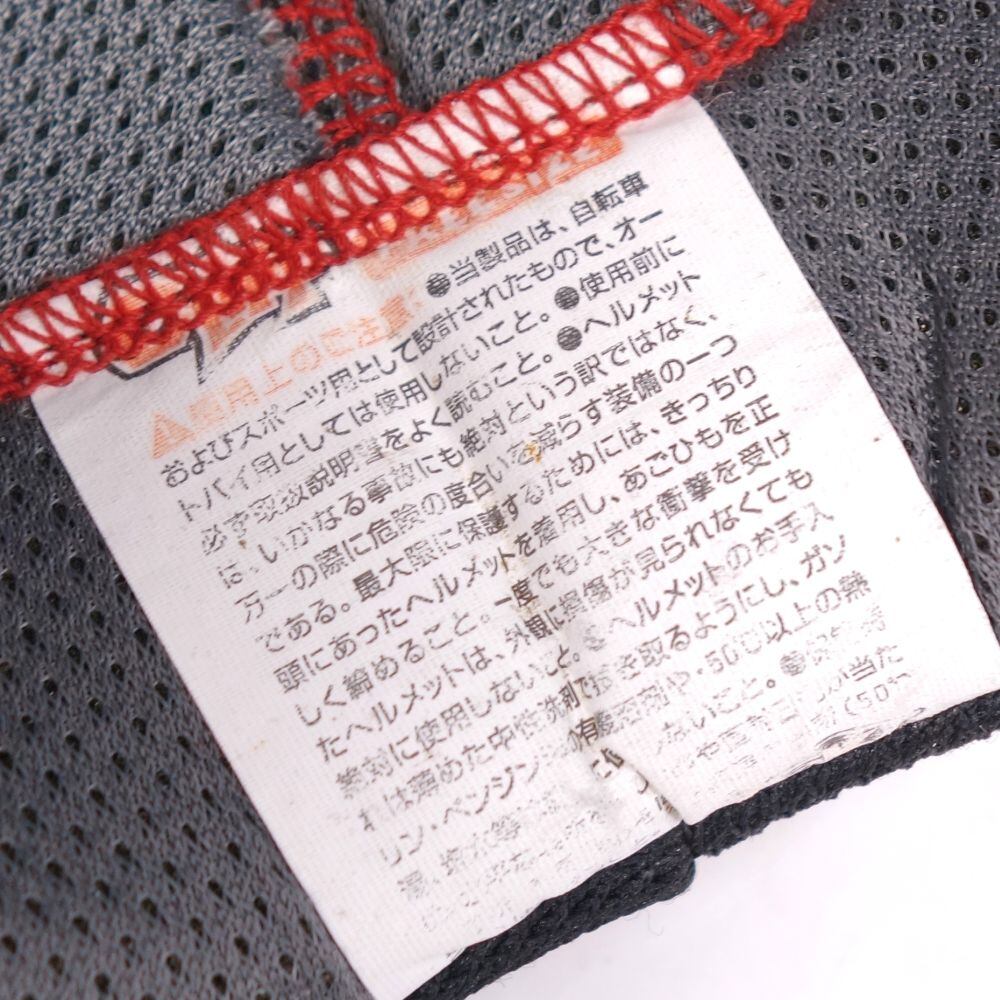 ⚠使用上のご注意
●当製品は、自転車
およびスポーツ用として設計されたもので、オー
トバイ用としては使用しないこと。●使用前に
必ず取扱説明書をよく読むこと。●ヘルメット
は、いかなる事故にも絶対という訳ではなく、
万一の際に危険の度合いを減らす装備の一つ
である。最大限に保護するためには、きっちり
頭にあったヘルメットを着用し、あごひもを正
しく締めること。一度でも大きな衝撃を受け
たヘルメットは、外観に損傷が見られなくても
絶対に使用しないこと。●ヘルメットのお手入
は薄めた中性洗剤で 取るようにし、ガソ
リン・ベンジン 有機溶剤や、50℃以上の熱
ないこと。●
が当た
(50℃